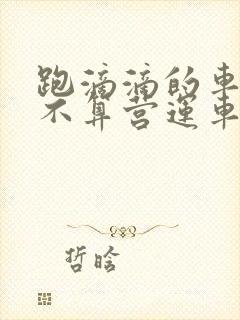 跑滴滴的車
不算营運車
哲晗